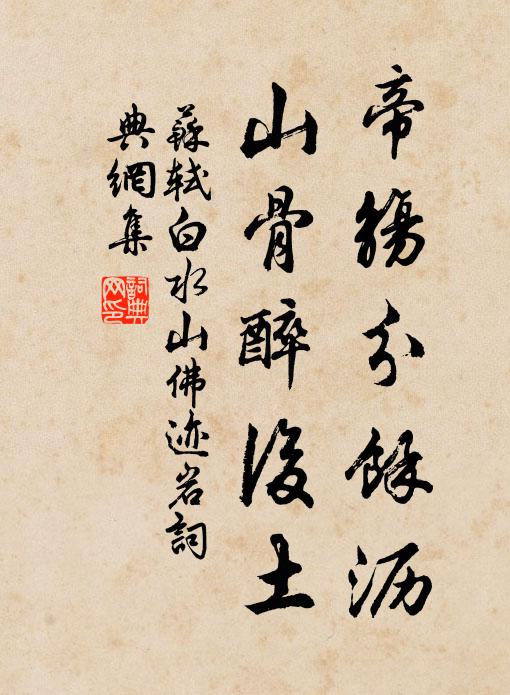 帝觴分餘沥
山骨醉後土
蘇軾白水山佛迹岩詞
典網集
詞典网印